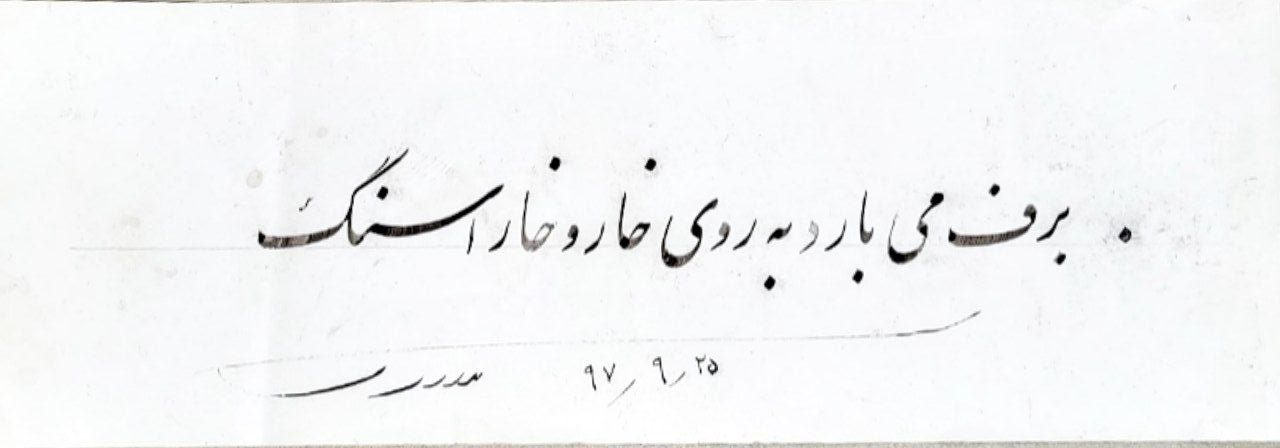 برف می بارد به روی خار و خارا سنگ
۹۷٫۹٫۲۵